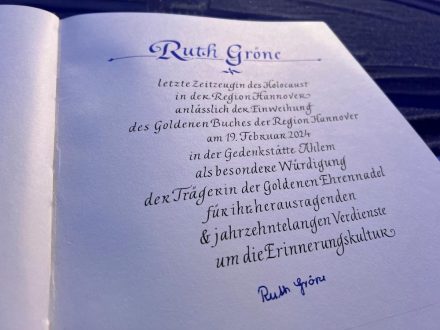 Ruth Gröne
letzte Zeitzeugin des Holocaust
in der Region Hannover
anlässlich der Einweihung
des Goldenen Buches der Region Hannover
am 19. Februar 2024
in der Gedenkstätte Ahlem
als besondere Würdigung
der Trägerin der Goldenen Ehrennadel
für ihr herausragenden
& jahrzehntelangen Verdienste
um die Erinnerungskultur
Ruth Gröne